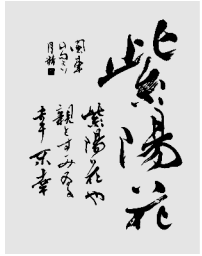 紫陽花
紫陽花や
親とすみゐる
幸不幸